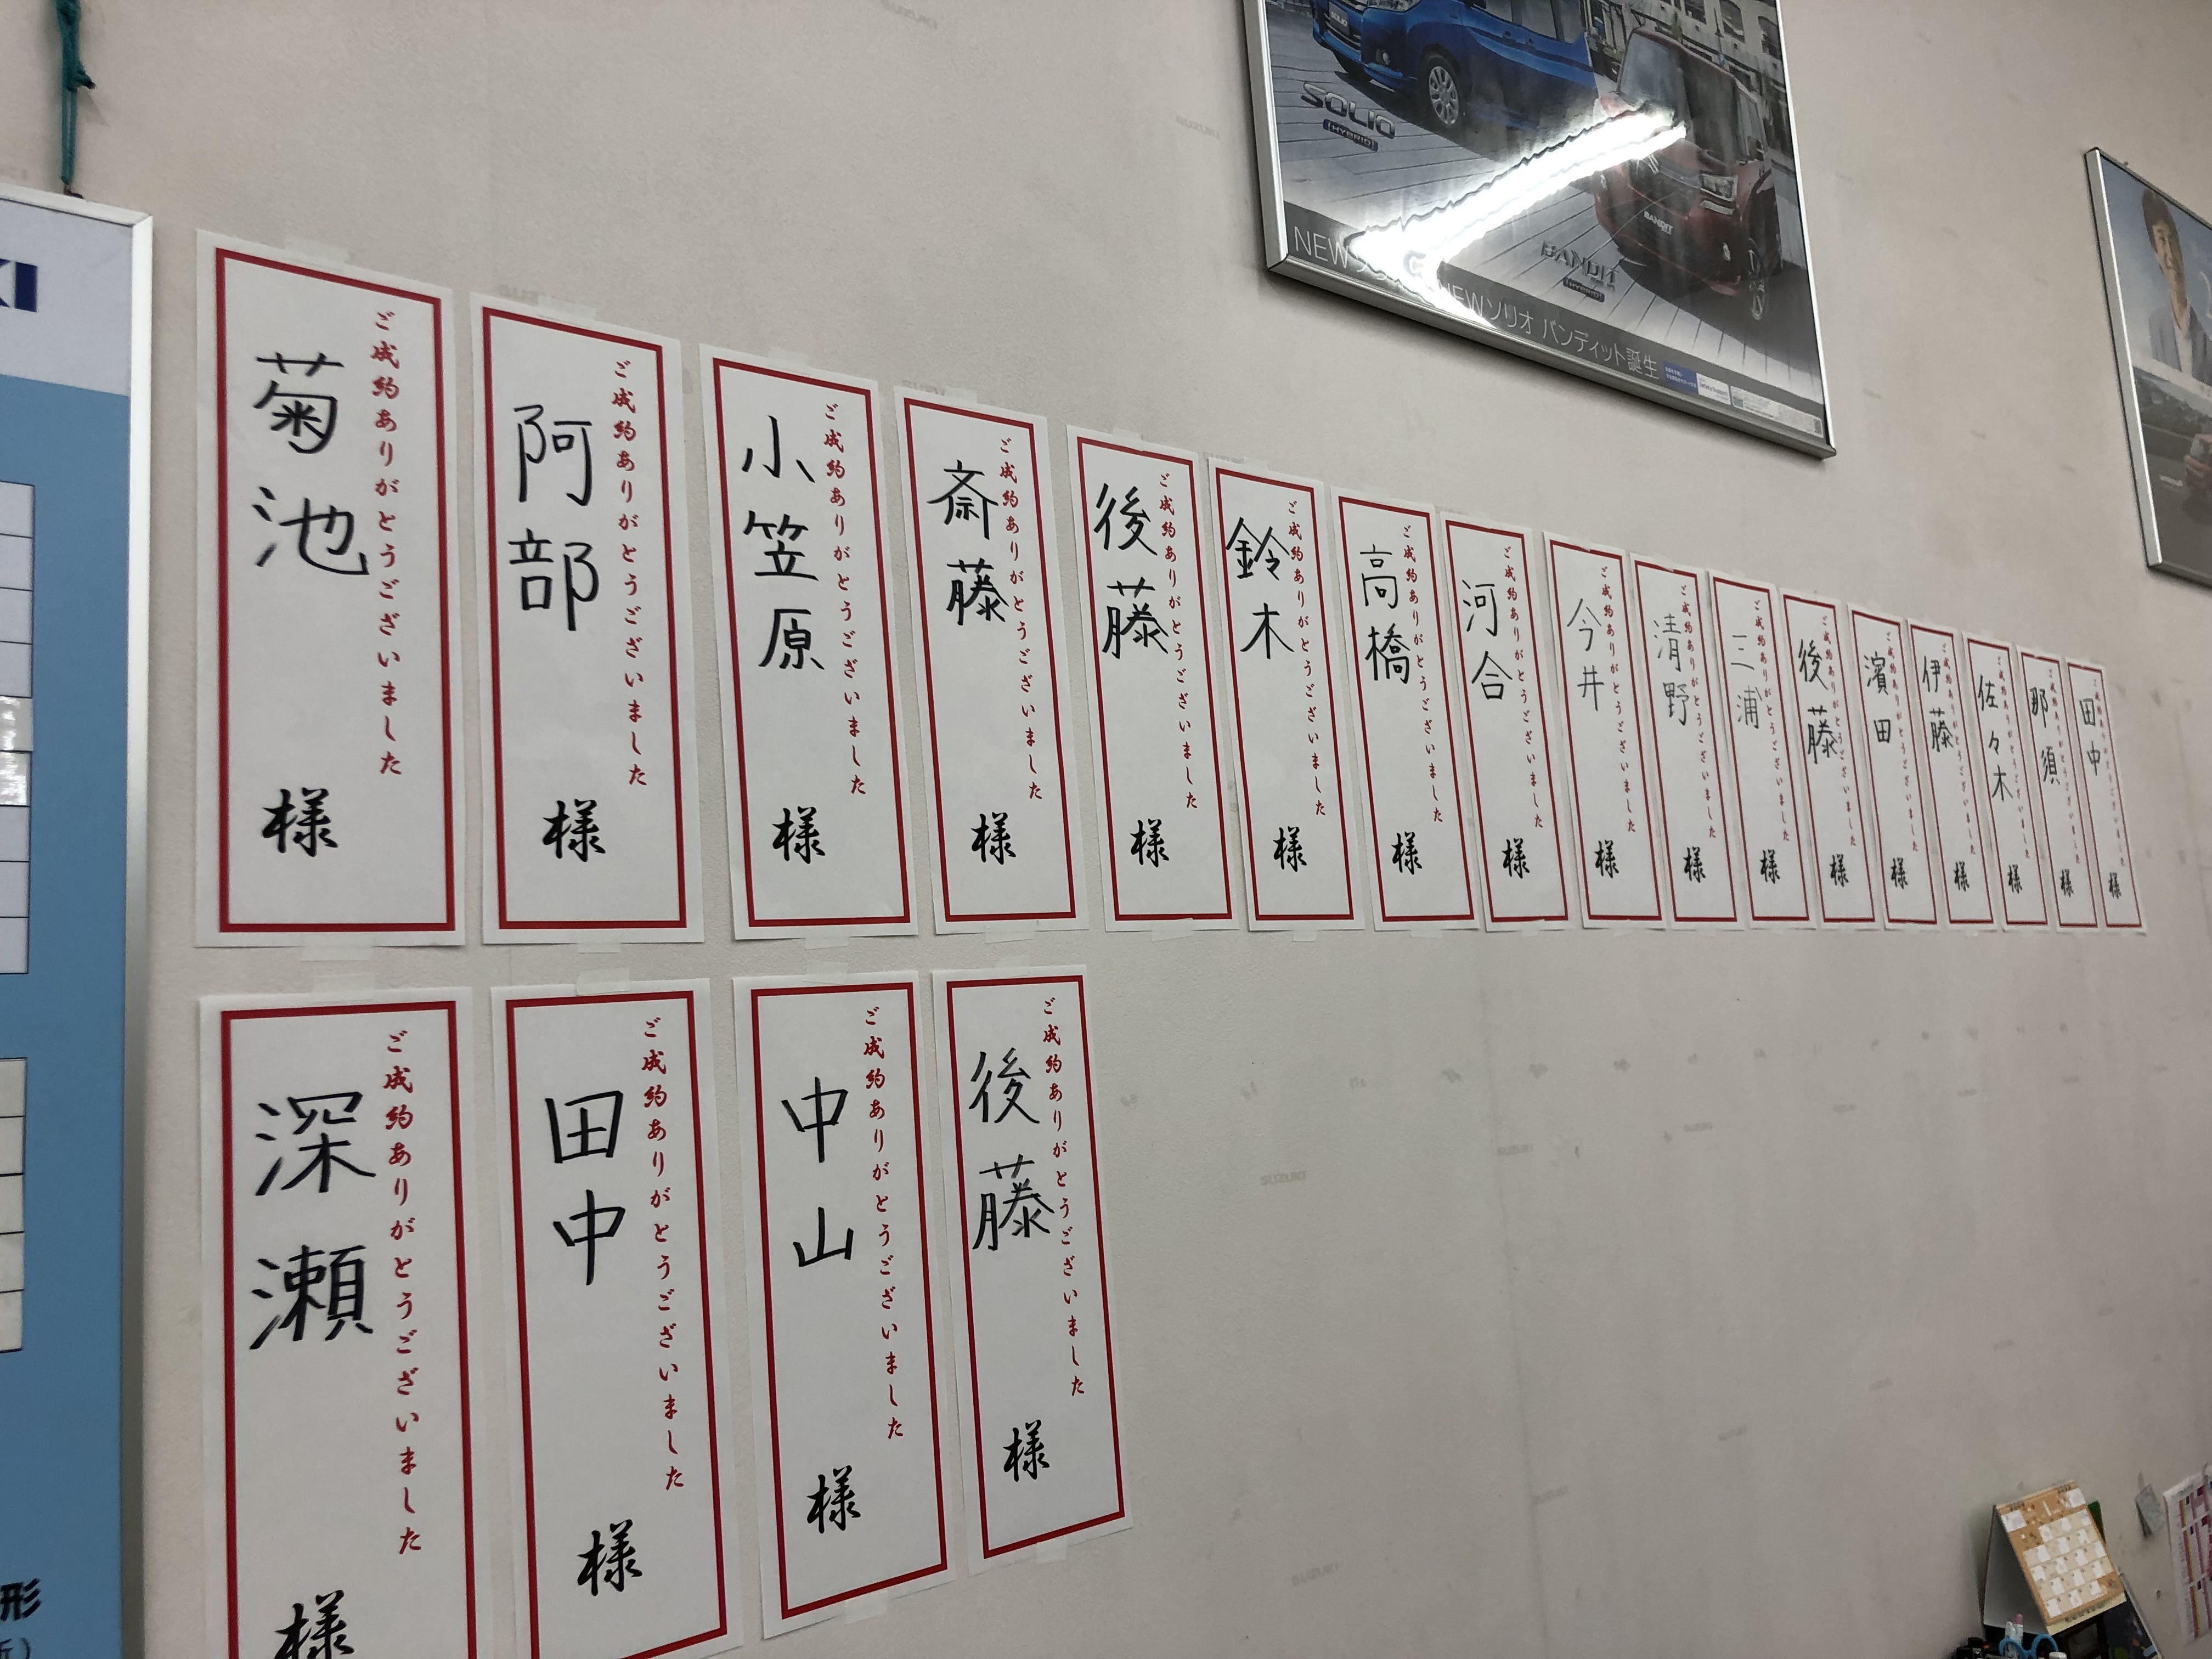 KI
SOLIO
HYBRID
BANDIT
BANDIT
HYBRID
NEW
NEWソリオ バンディット誕生
菊池
ご成約ありがとうございました
様
阿部
ご成約ありがとうございました
様
小笠原
ご成約ありがとうございました
様
斎藤
ご成約ありがとうございました
様
後藤
ご成約ありがとうございました
様
鈴木
ご成約ありがとうございました
様
高橋
ご成約ありがとうございました
様
河合
ご成約ありがとうございました
様
今井
ご成約ありがとうございました
様
清野
ご成約ありがとうございました
様
三浦
ご成約ありがとうございました
様
後藤
ご成約ありがとうございました
様
濱田
ご成約ありがとうございました
様
伊藤
ご成約ありがとうございました
様
佐々木
ご成約ありがとうございました
様
那須
ご成約ありがとうございました
様
田中
ご成約ありがとうございました
様
深瀬
ご成約ありがとうございました
様
田中
ご成約ありがとうございました
様
中山
ご成約ありがとうございました
様
後藤
ご成約ありがとうございました
様
形